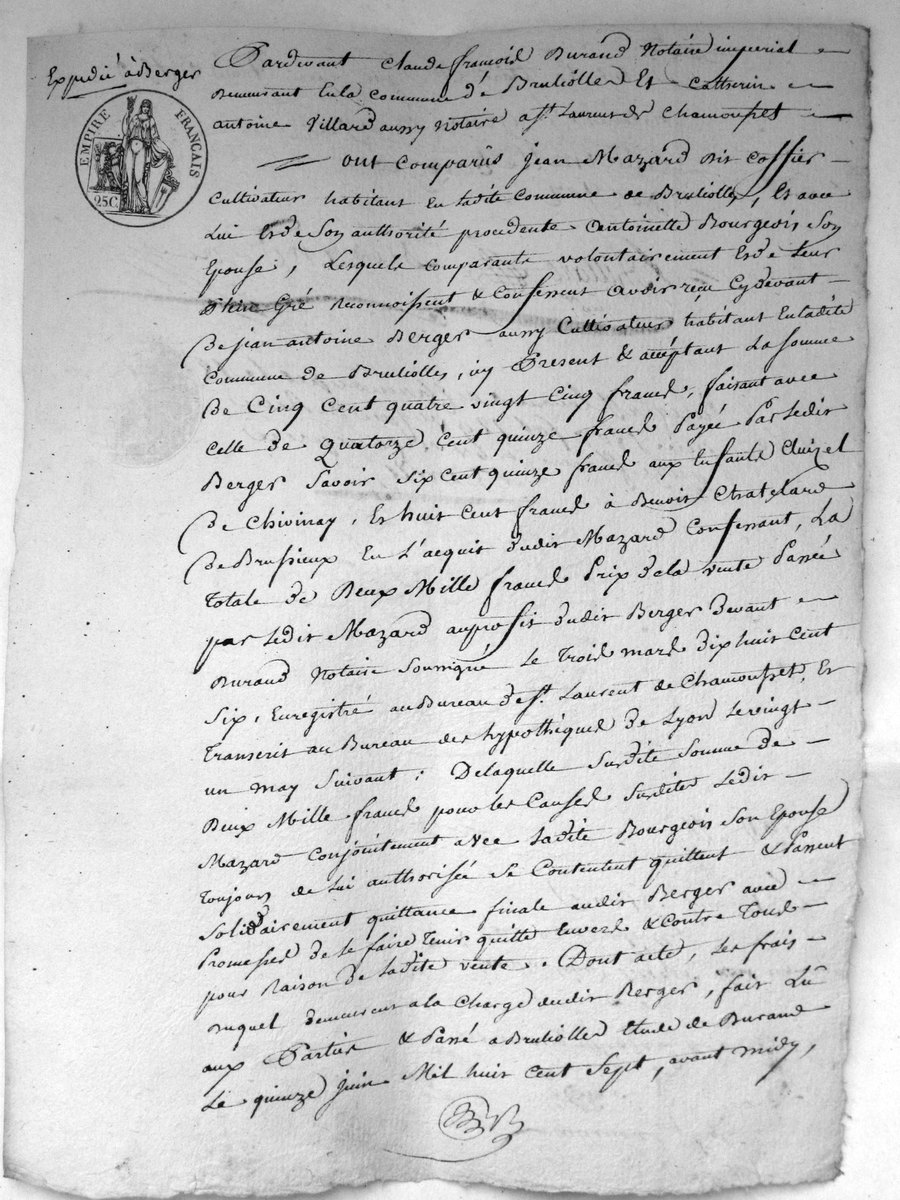 Expedié à Berger
EMPIRE FRANÇAIS
25C.
Pardevant Claude françois Durand Notaire imperial
demeurant En la commune de Brulioller Et Catherin
antoine Villard aussy Notaire a St. Laurent de Chamousset
ont comparûs Jean Mazard dit Coffier
Cultivateur habitant En ladite Commune de Brulioller, Et avec
Lui Et de Son authorité procedente antoinette Bourgeois Son
Epouse, Lesquels comparants volontairement Et de Leur
Gré Reconnoissent & Confessent avoir reçu Cy devant
De jean antoine Berger aussy Cultivateur habitant En ladite
Commune de Brulioller, icy Present & acceptant La somme
De Cinq Cent quatre vingt Cinq francs, faisant avec
Celle de Quatorze Cent quinze francs Payée Par ledit
Berger Savoir Six Cent quinze francs aux Enfants Cluizel
De Chivinay, Et huit Cent francs à Benoit Chatelard
De Brussieux En L'acquit dudit Mazard Confessant, La
Totale de Deux Mille francs Prix de la vente Passée
par Ledit Mazard au profit dudit Berger devant
Durand Notaire Soussigné Le Trois mars dix huit Cent
Six, Enregistré au Bureau de St. Laurent de Chamousset, Et
Transcrit au Bureau des hypothèques de Lyon Le vingt
un may Suivant ; De laquelle Susdite Somme de
Deux Mille francs pour les Causes Susdites Ledit
Mazard Conjointement avec Ladite Bourgeois Son Epouse
Toujours de Lui authorisée Se Contentent quittent & Passent
Solidairement quittance finale audit Berger avec
Promesse de le faire Tenir quitte Envers & Contre Tous
pour Raison de Ladite vente. Dont acte, Les frais
Duquel demeurent a la Charge dudit Berger, fait Lû
aux Parties & Passé a Brulioller Etude de Durand
Le quinze juin Mil huit Cent Sept, avant midy,